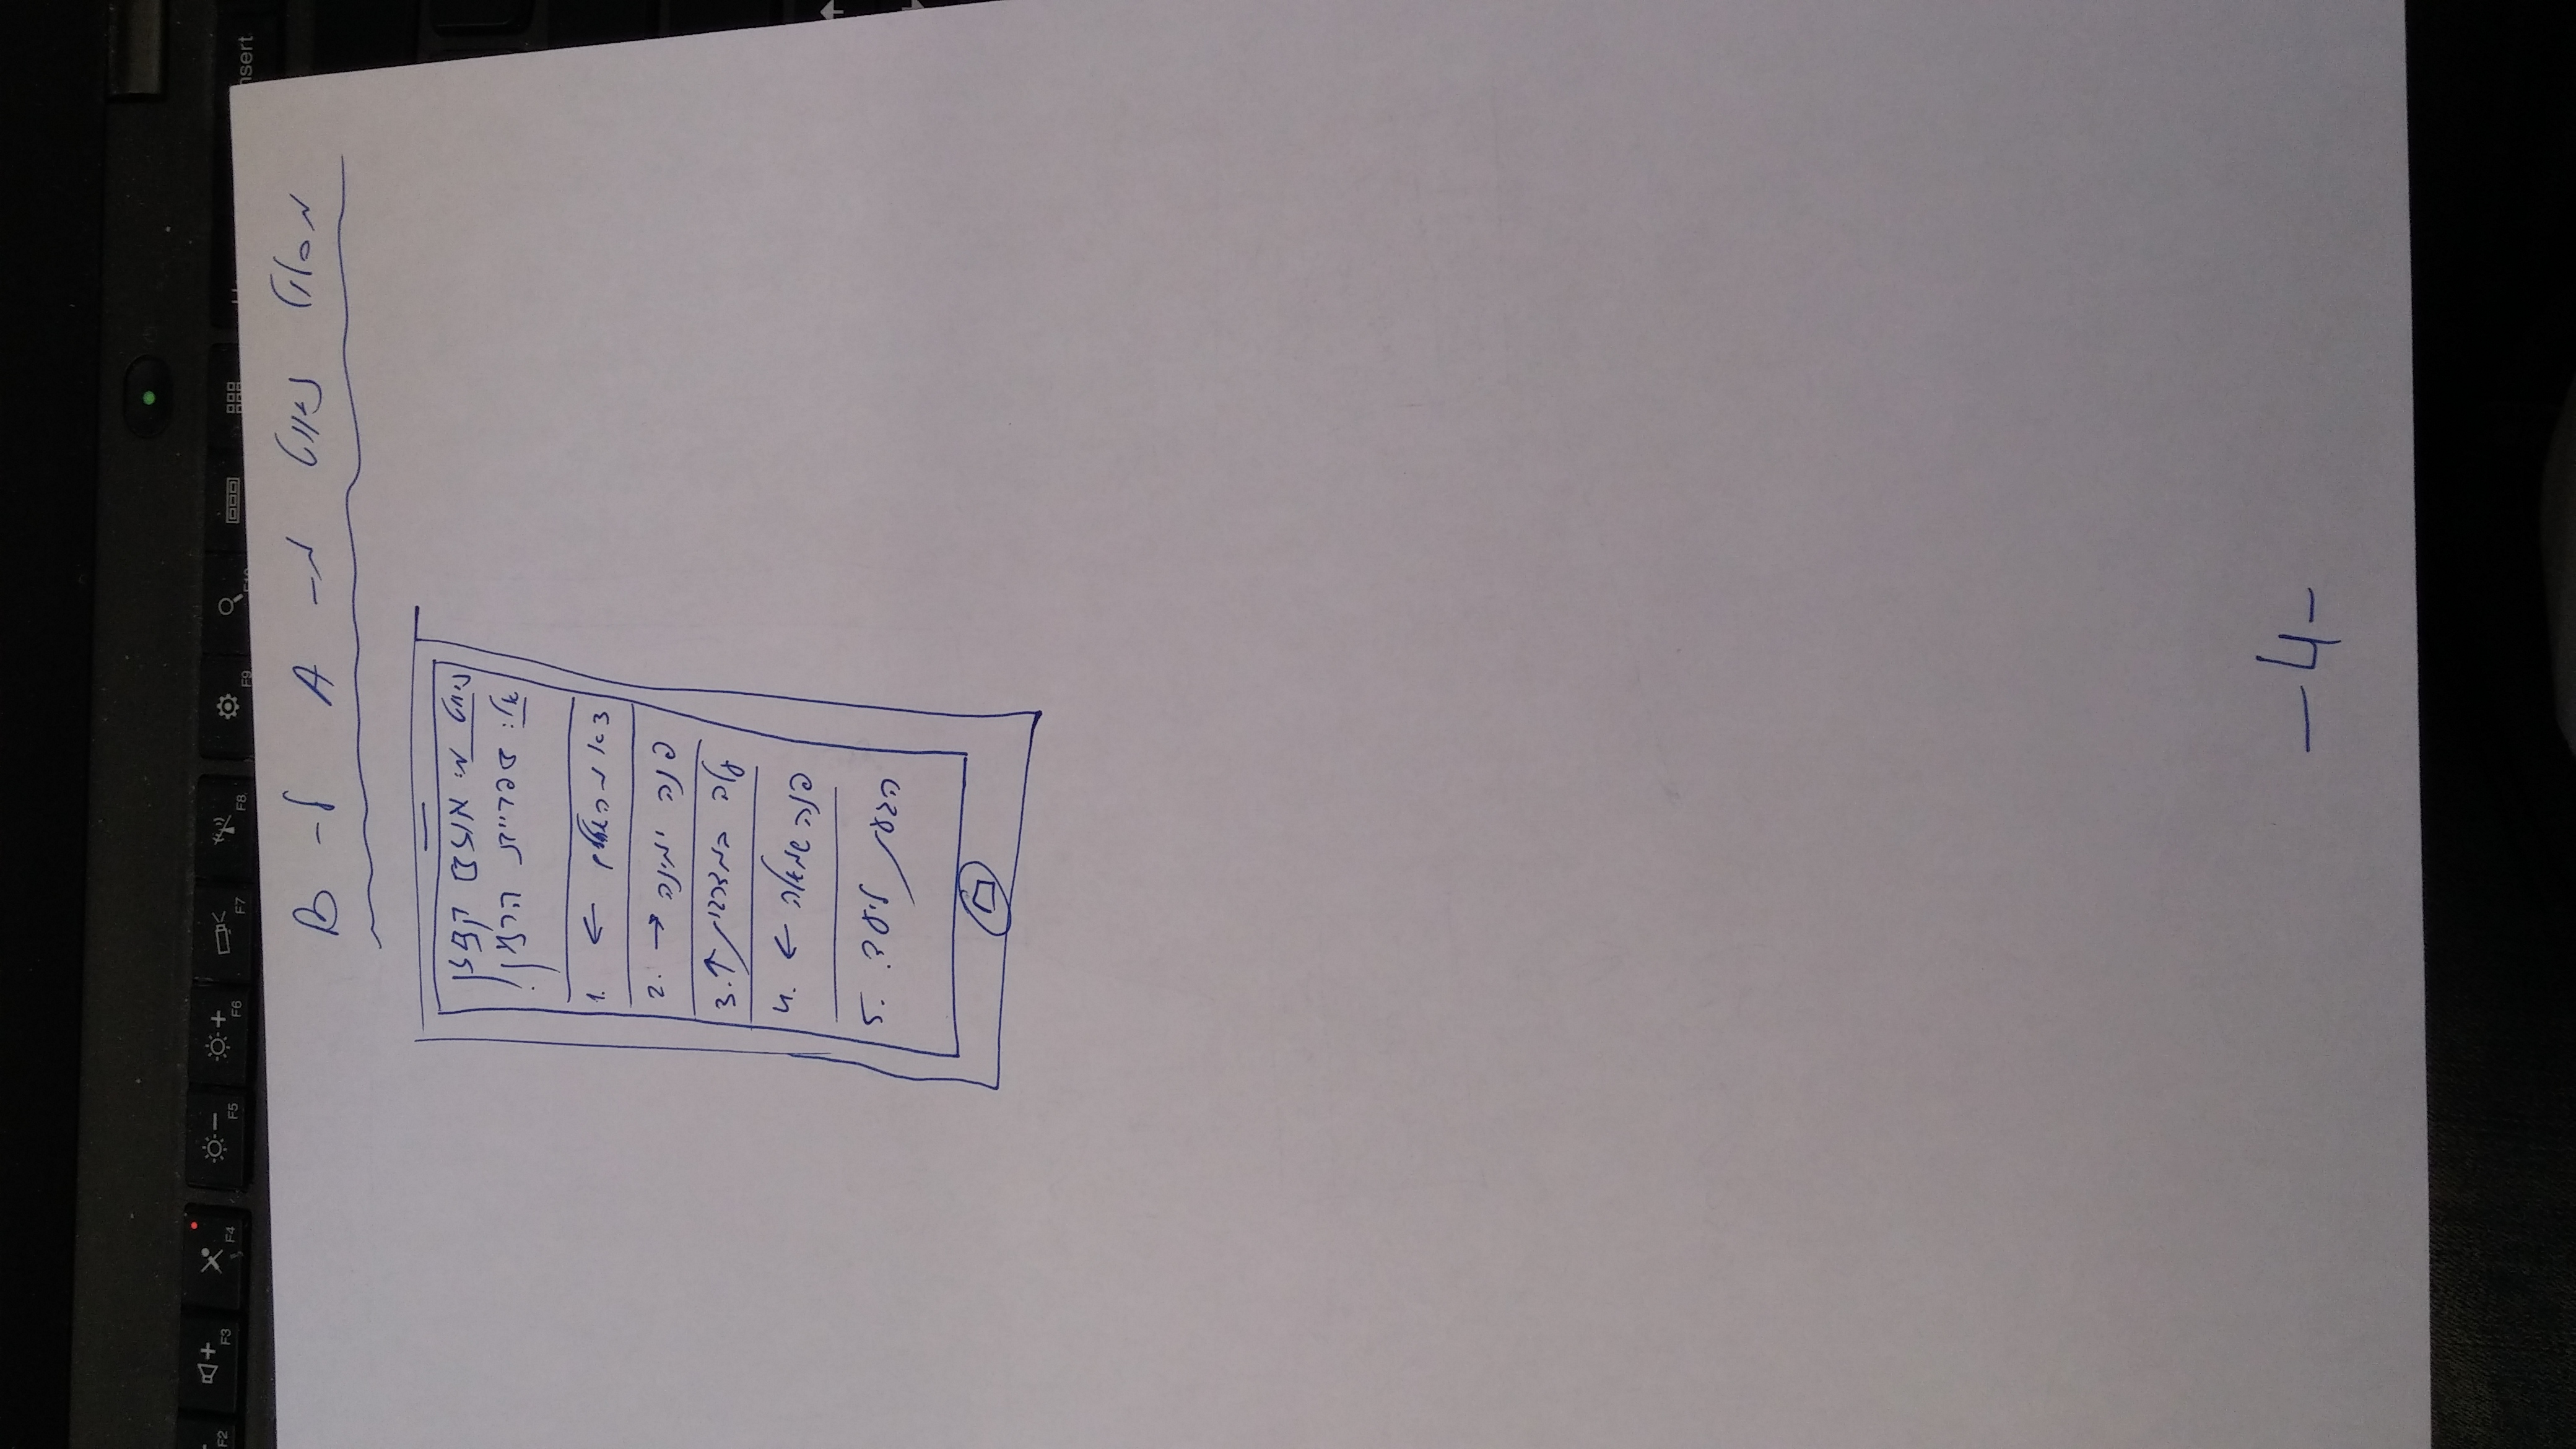 F2 F3 F4 F5 F6 F7 F8 F9 nsert
מסלול ניווט מ- A ל- B
ניווט מ: אולם קצין
אל: ספריית הרמן.
1. צא מהאולם ←
2. פנה ימינה →
3. עלה במדרגות ↑
4. פנה שמאלה ←
5. הגעת ליעד.
-4-